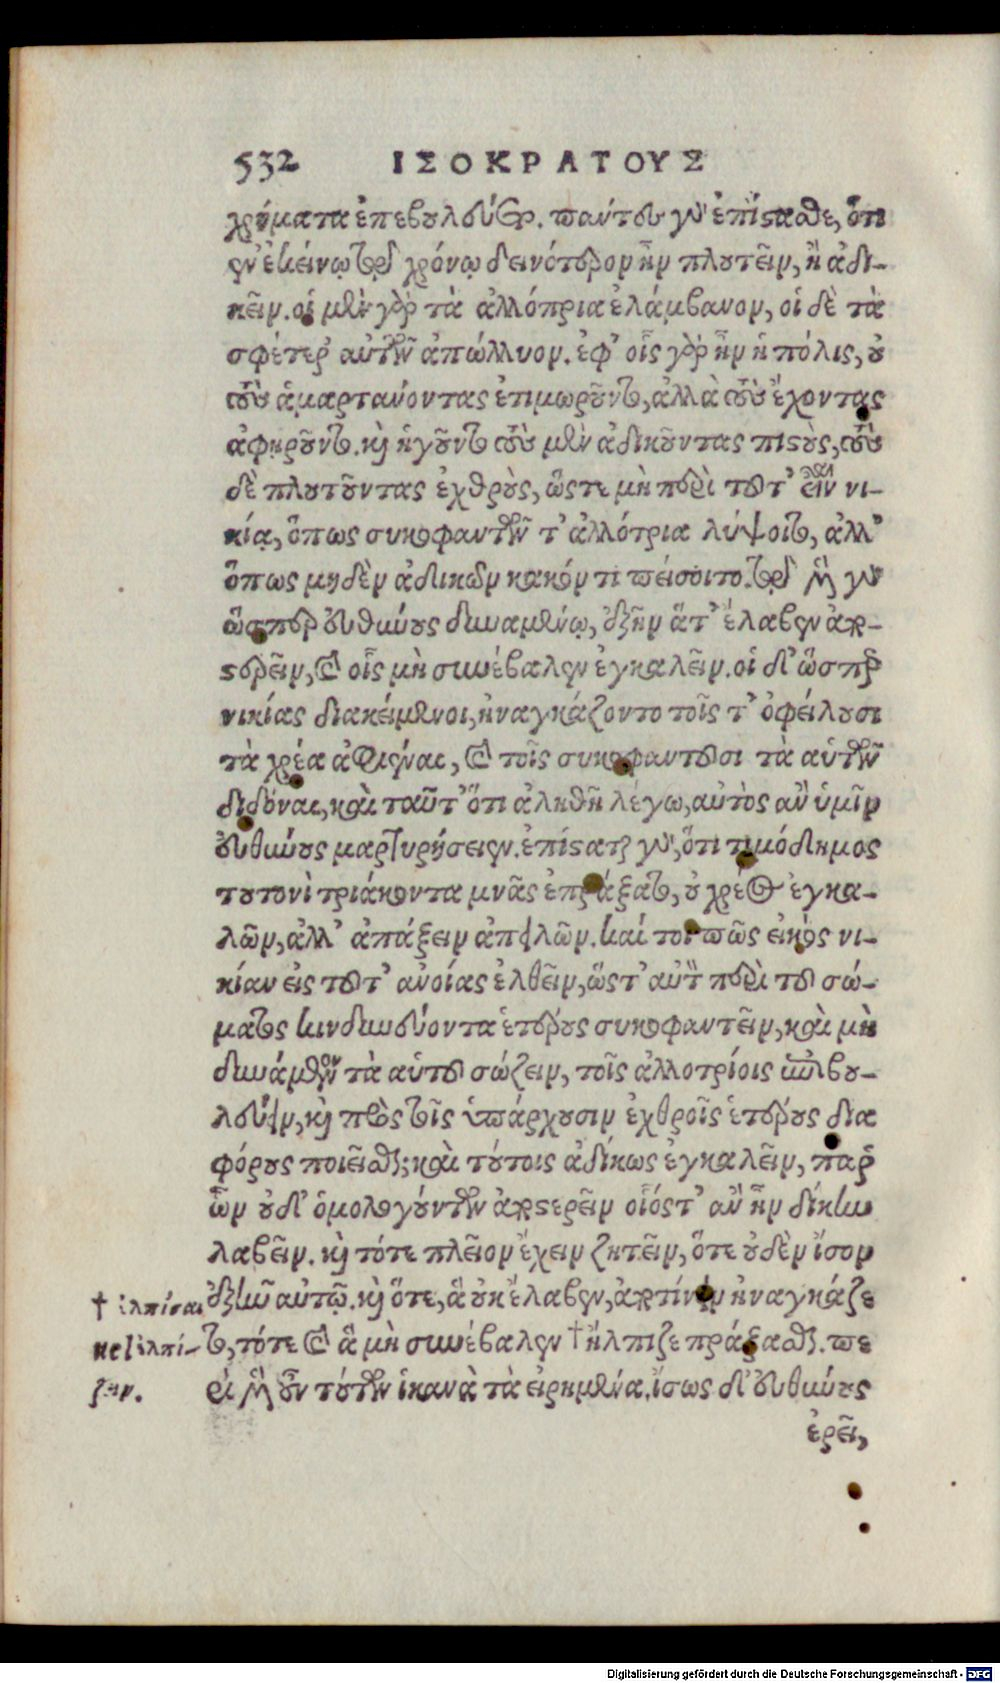 532 ΙΣΟΚΡΑΤΟΥΣ
χρήματα ἐπεβούλευεν. πάντες γὰρ ἐπίστασθε, ὅτι
ἐν ἐκείνῳ τῷ χρόνῳ δεινότερον ἦν πλουτεῖν, ἢ ἀδι-
κεῖν. οἱ μὲν γὰρ τὰ ἀλλότρια ἐλάμβανον, οἱ δὲ τὰ
σφέτερ' αὐτῶν ἀπώλλυον. ἐφ' οἷς γὰρ ἦν ἡ πόλις, οὐ
τοὺς ἁμαρτάνοντας ἐτιμωροῦντο, ἀλλὰ τοὺς ἔχοντας
ἀφῃροῦντο. καὶ ἡγοῦντο τοὺς μὲν ἀδικοῦντας πιστοὺς, τοὺς
δὲ πλουτοῦντας ἐχθροὺς, ὥστε μὴ περὶ τοῦτ' εἶναι νι-
κίᾳ, ὅπως συκοφαντῶν τ' ἀλλότρια λήψοιτο, ἀλλ'
ὅπως μηδὲν ἀδικῶν κακόν τι πείσοιτο. τῷ μὲν γὰρ
ὥσπερ εὐθύνους δυναμένῳ, ἐξῆν ἅτ' ἔλαβεν ἀπο-
στερεῖν, καὶ οἷς μὴ συνέβαλεν ἐγκαλεῖν. οἱ δ' ὥσπερ
νικίας διακείμενοι, ἠναγκάζοντο τοῖς τ' ὀφείλουσι
τὰ χρέα ἀφιέναι, καὶ τοῖς συκοφαντοῦσι τὰ αὑτῶν
διδόναι, καὶ ταῦτ' ὅτι ἀληθῆ λέγω, αὐτὸς ἂν ὑμῖν
εὐθύνους μαρτυρήσειεν. ἐπίσταται γὰρ, ὅτι τιμόδημος
τουτονὶ τριάκοντα μνᾶς ἐπράξατο, οὐ χρέος ἐγκα-
λῶν, ἀλλ' ἀπάξειν ἀπειλῶν. καί τοι πῶς εἰκὸς νι-
κίαν εἰς τοῦτ' ἀνοίας ἐλθεῖν, ὥστ' αὐτὸν περὶ τοῦ σώ-
ματος κινδυνεύοντα ἑτέρους συκοφαντεῖν, καὶ μὴ
δυνάμενον τὰ αὑτοῦ σώζειν, τοῖς ἀλλοτρίοις ἐπιβου-
λεύειν, καὶ πρὸς τοῖς ὑπάρχουσιν ἐχθροῖς ἑτέρους δια
φόρους ποιεῖσθαι; καὶ τούτοις ἀδίκως ἐγκαλεῖν, παρ'
ὧν οὐδ' ὁμολογούντων ἀποστερεῖν οἷός τ' ἂν ἦν δίκην
λαβεῖν. καὶ τότε πλεῖον ἔχειν ζητεῖν, ὅτε οὐδὲν ἴσον
† ἐλπίσαι ἐξῆν αὐτῷ. καὶ ὅτε, ἃ οὐκ ἔλαβεν, ἀποτίνειν ἠναγκάζε
uel ἐλπί- το, τότε καὶ ἃ μὴ συνέβαλεν † ἤλπιζε πράξασθαι. πε
ζειν. ρὶ μὲν οὖν τούτων ἱκανὰ τὰ εἰρημένα, ἴσως δ' εὐθύνους
ἐρεῖ,
Digitalisierung gefördert durch die Deutsche Forschungsgemeinschaft - DFG